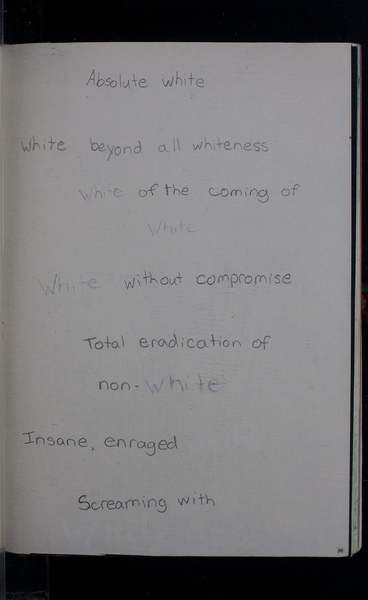 Absolute white
white beyond all whiteness
White of the coming of
White
White without compromise
Total eradication of
non-white
Insane, enraged
Screaming with